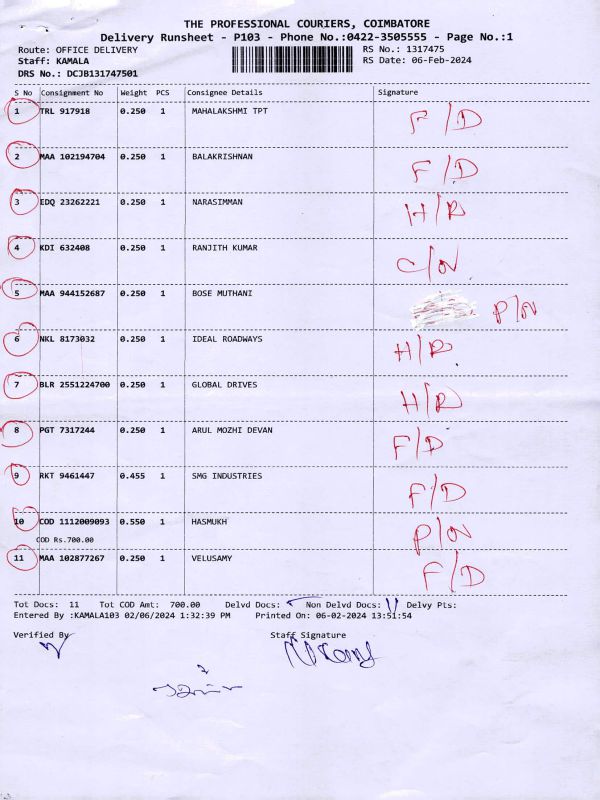 THE PROFESSIONAL COURIERS, COIMBATORE
Delivery Runsheet - P103 - Phone No.:0422-3505555 - Page No.:1
Route: OFFICE DELIVERY RS No.: 1317475
Staff: KAMALA RS Date: 06-Feb-2024
DRS No.: DCJB131747501
S No Consignment No Weight PCS Consignee Details Signature
1 TRL 917918 0.250 1 MAHALAKSHMI TPT F/D
2 MAA 102194704 0.250 1 BALAKRISHNAN F/D
3 EDQ 23262221 0.250 1 NARASIMMAN H/R
4 KDI 632408 0.250 1 RANJITH KUMAR C/N
5 MAA 944152687 0.250 1 BOSE MUTHANI P/N
6 NKL 8173032 0.250 1 IDEAL ROADWAYS H/R
7 BLR 2551224700 0.250 1 GLOBAL DRIVES H/R
8 PGT 7317244 0.250 1 ARUL MOZHI DEVAN F/D
9 RKT 9461447 0.455 1 SMG INDUSTRIES F/D
10 COD 1112009093 0.550 1 HASMUKH P/N
COD Rs.700.00
11 MAA 102877267 0.250 1 VELUSAMY F/D
Tot Docs: 11 Tot COD Amt: 700.00 Delvd Docs: Non Delvd Docs: 11 Delvy Pts:
Entered By :KAMALA103 02/06/2024 1:32:39 PM Printed On: 06-02-2024 13:51:54
Verified By Staff Signature